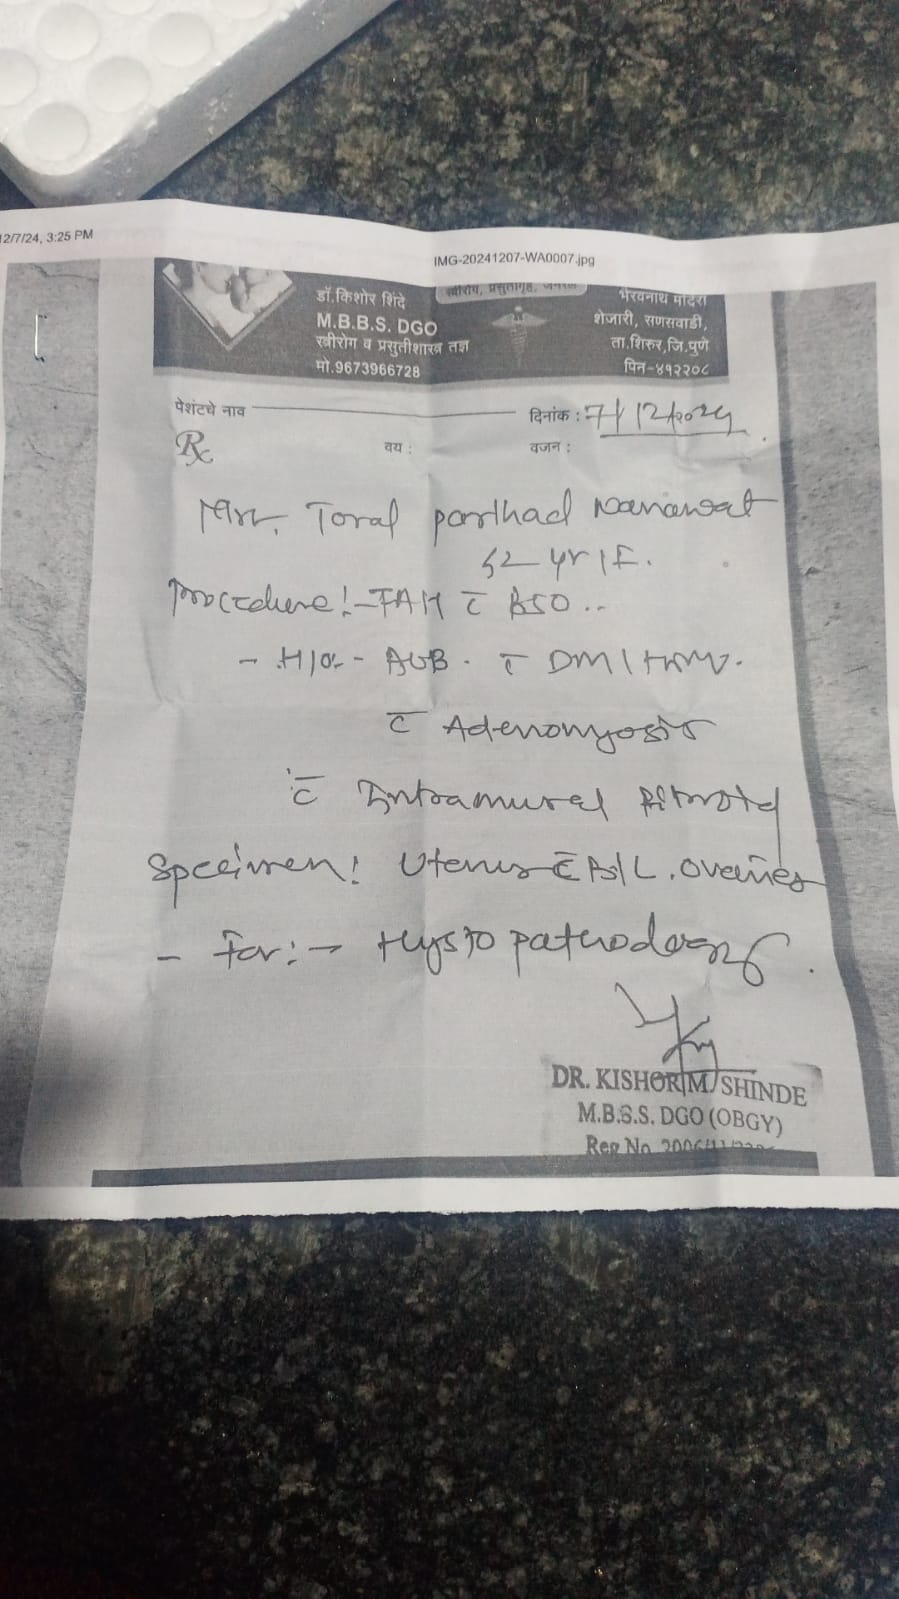 12/7/24, 3:25 PM
IMG-20241207-WA0007.jpg
स्त्रीरोग, प्रसुतीगृह, जनरल
डॉ.किशोर शिंदे
M.B.B.S. DGO
स्त्रीरोग व प्रसुतीशास्त्र तज्ञ
मो.9673966728
भैरवनाथ मंदिरा
शेजारी, सणसवाडी,
ता.शिरुर,जि.पुणे
पिन-४१२२०८
पेशंटचे नाव
दिनांक : 7/12/2024
Rx वय : वजन :
Mrs. Toral Nanawat
52 yr/F.
Procedure:- TAH c̄ BSO..
- H/o - AUB. c̄ DM/HTN.
c̄ Adenomyosis
c̄ Intramural Fibroid
Specimen: Uterus c̄ B/L. ovaries
- For:→ Hystopathology.
DR. KISHOR M. SHINDE
M.B.B.S. DGO (OBGY)
Reg No.